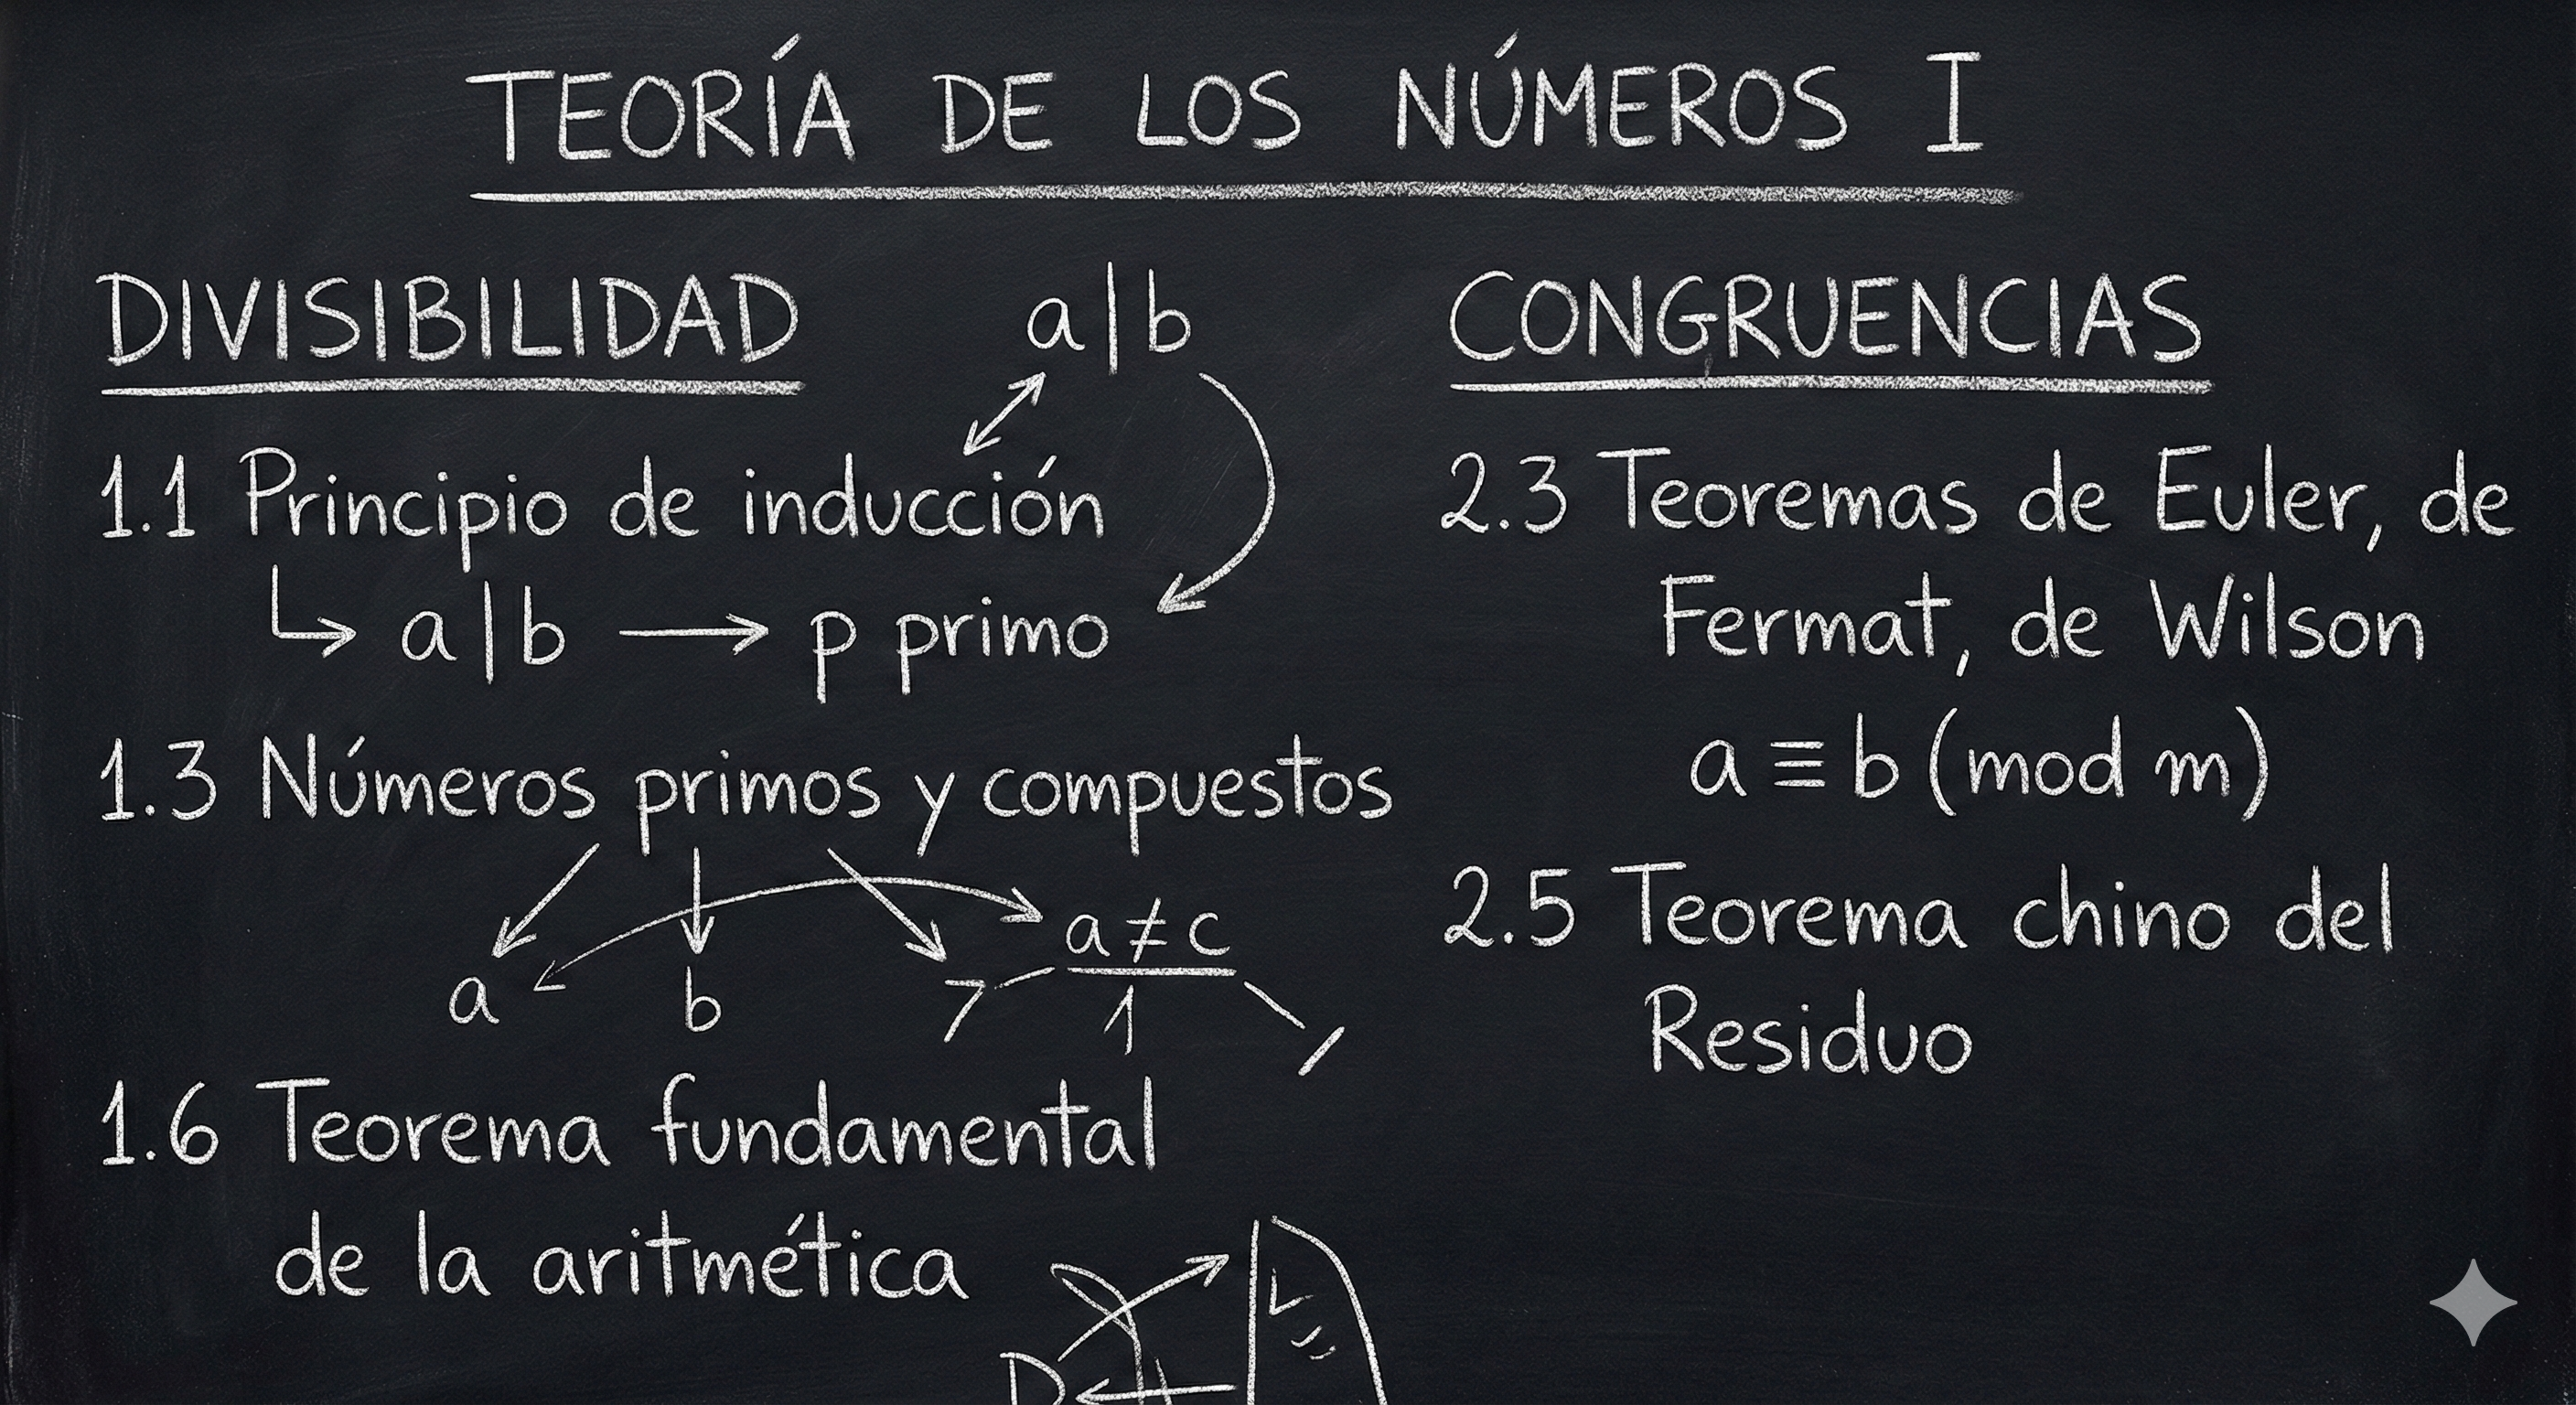 TEORÍA DE LOS NÚMEROS I
DIVISIBILIDAD
a|b
1.1 Principio de inducción
a|b → p primo
1.3 Números primos y compuestos
a b 7 a ≠ c
1
1.6 Teorema fundamental
de la aritmética
D
CONGRUENCIAS
2.3 Teoremas de Euler, de
Fermat, de Wilson
a ≡ b (mod m)
2.5 Teorema chino del
Residuo